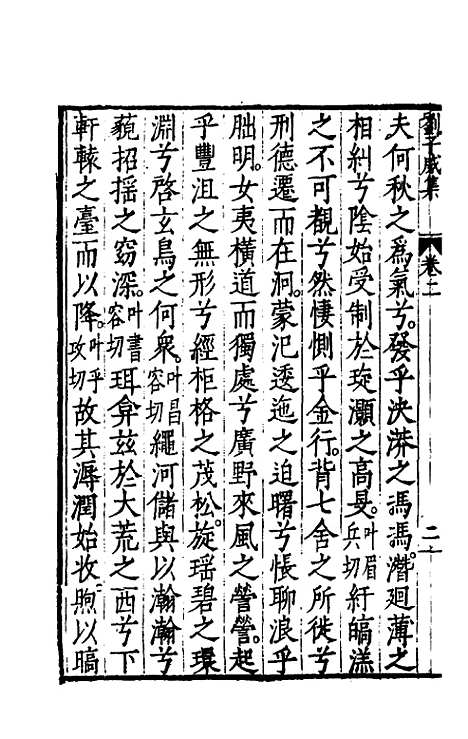 劉子威集 卷二 二十
夫何秋之爲氣兮。發乎泱漭之馮馮。潛廻薄之
相糾兮陰始受制於琁灝之高旻。叶眉兵切紆皜溔
之不可觀兮然悽惻乎金行。背七舍之所徙兮
刑德遷而在洞。蒙汜逶迤之迫曙兮悵聊浪乎
朏明。女夷橫道而獨處兮廣野來風之謍謍。起
乎豐沮之無形兮經柜格之茂松。旋瑶碧之環
淵兮啓玄鳥之何衆。叶昌容切繩河儲與以瀚瀚兮
藐招揺之窈深。叶書容切珥弇兹於大荒之西兮下
軒轅之臺而以降。叶乎攻切故其溽潤始收煦以暠